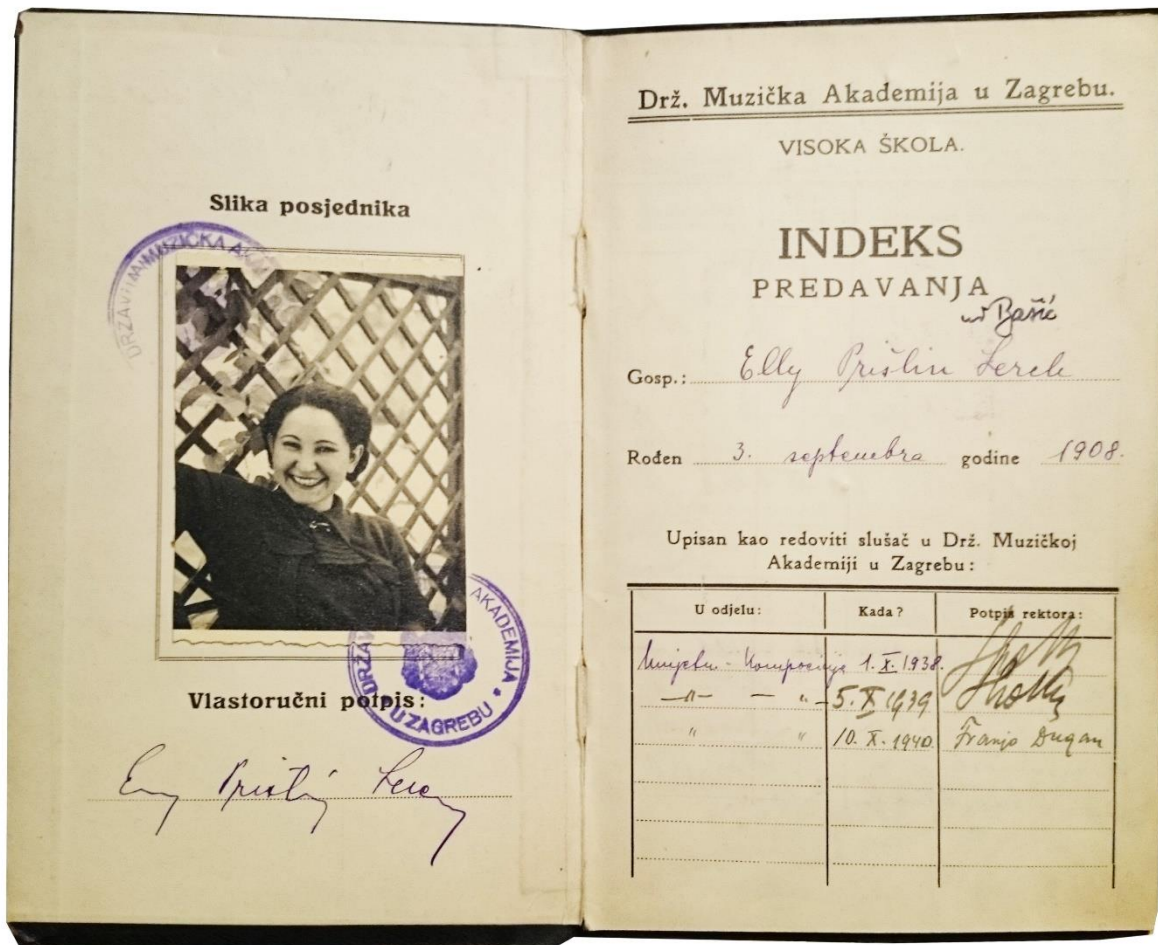 Slika posjednika
DRŽAVNA MUZIČKA AKADEMIJA
U ZAGREBU
Vlastoručni potpis:
Elly Prištin Lerch
Drž. Muzička Akademija u Zagrebu.
VISOKA ŠKOLA.
INDEKS
PREDAVANJA
ud Bašić
Gosp.: Elly Prišlin Lerch
Rođen 3. septembra godine 1908.
Upisan kao redoviti slušač u Drž. Muzičkoj
Akademiji u Zagrebu:
U odjelu: Kada? Potpis rektora:
Kompozicija 1. X. 1938.
—"— — " — 5. X 1939
" " 10. X. 1940. Franjo Dugan